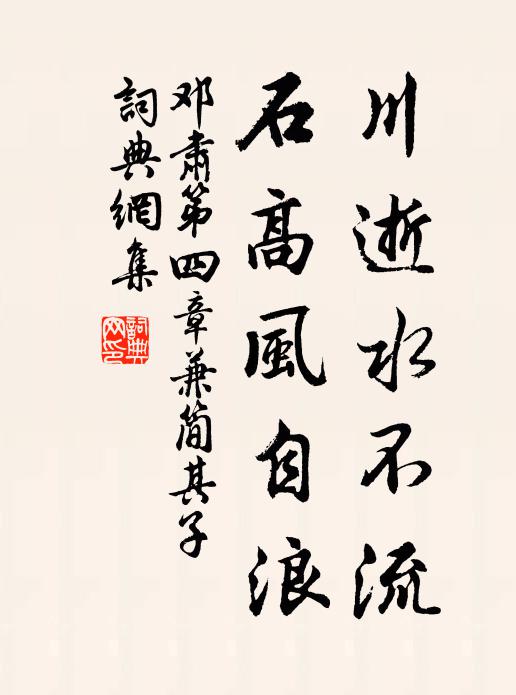 川逝水不流
石高風自浪
邓肅第四章兼简其子
詞典網集
詞典網印